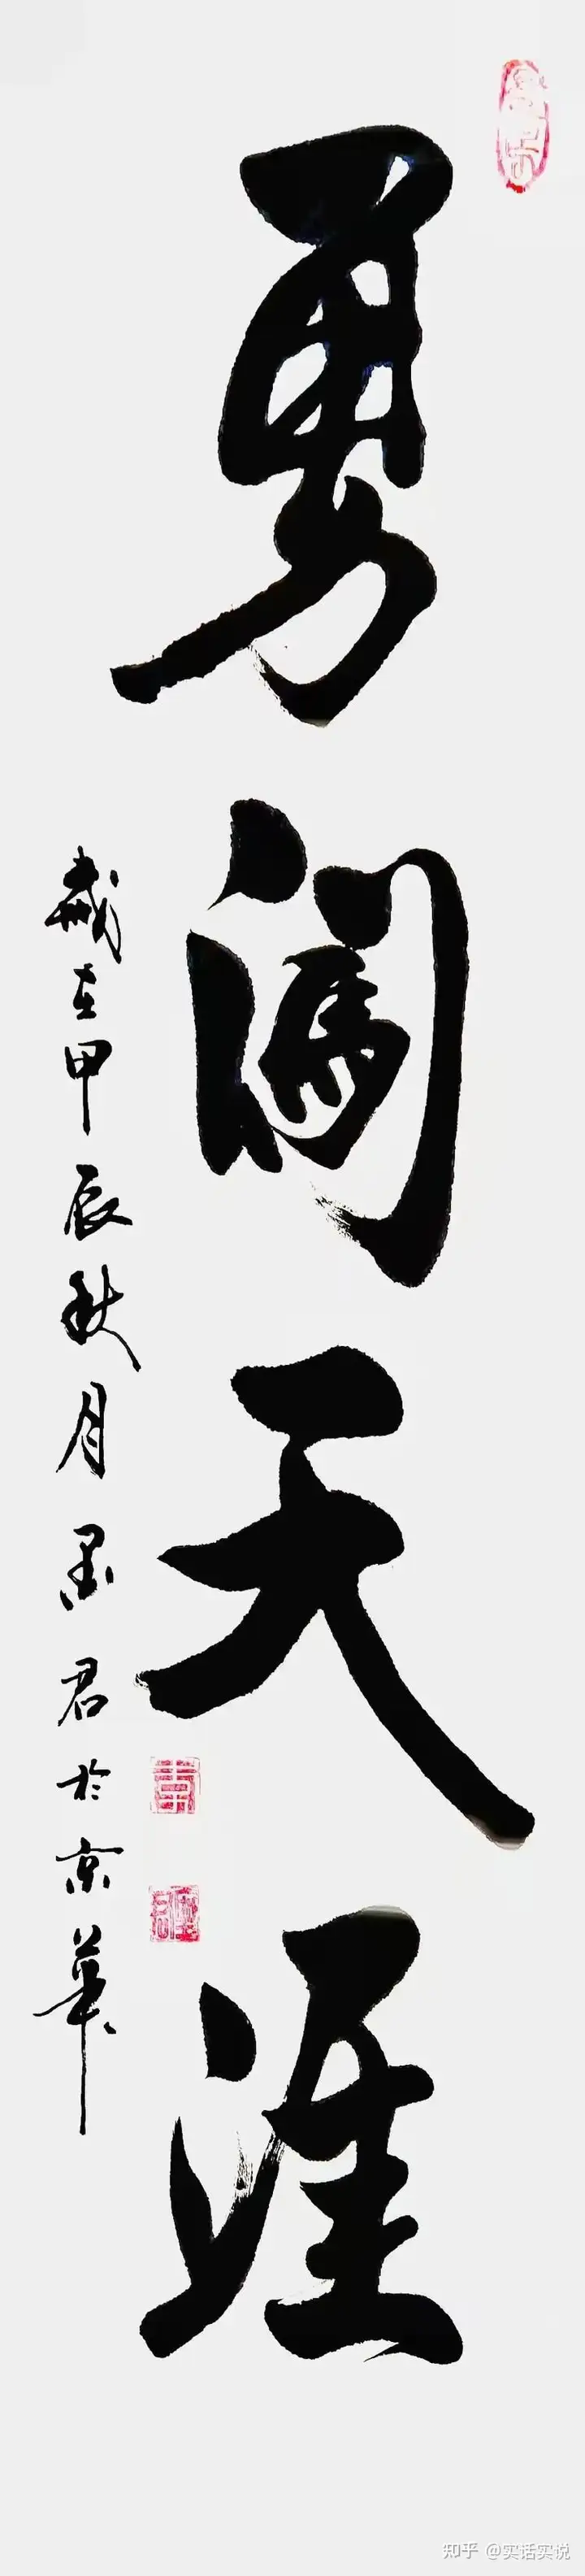 勇闯天涯
歲在甲辰秋月墨君於京華
知乎 @实话实说